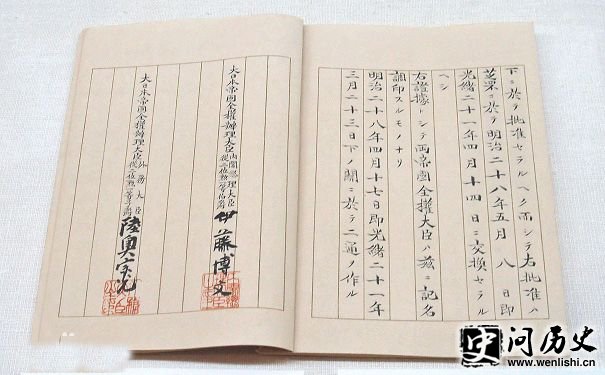 下ニ於テ批准セラルヘク而シテ右批准ハ
芝罘ニ於テ明治二十八年五月八日即
光緒二十一年四月十四日ニ交換セラル
ヘシ
右證據トシテ両帝國全權大臣ハ茲ニ記名
調印スルモノナリ
明治二十八年四月十七日即光緒二十一年
三月二十三日下ノ關ニ於テ二通ヲ作ル
大日本帝國全權辦理大臣
内閣總理大臣
從二位勲一等伯爵
伊藤博文
大日本帝國全權辦理大臣
外務大臣
從二位勲一等子爵
陸奥宗光
问历史
www.wenlishi.cn